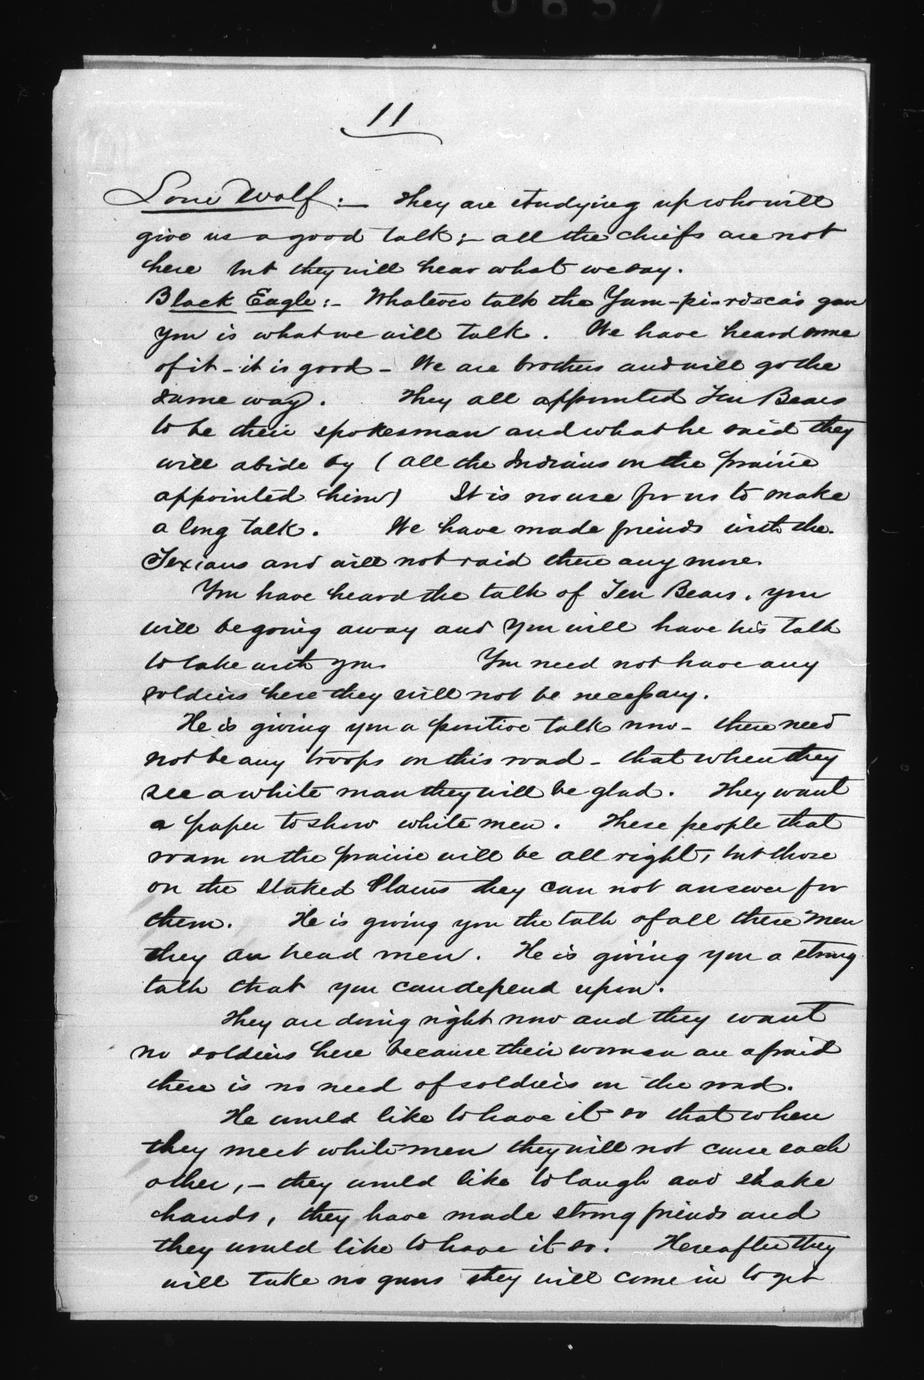 11
Lone Wolf:— They are studying up who will
give us a good talk;— all the chiefs are not
here but they will hear what we say.
Black Eagle:— Whatever talk the Yam-pis-ridca's gave
you is what we will talk. We have heard some
of it – it is good – We are brothers and will go the
same way. They all appointed Ten Bears
to be their spokesman and what he said they
will abide by (all the Indians on the prairie
appointed him) It is no use for us to make
a long talk. We have made friends with the
Texians and will not raid there any more.
You have heard the talk of Ten Bears, you
will be going away and you will have his talk
to take with you. You need not have any
soldiers here they will not be necessary.
He is giving you a positive talk now – there need
not be any troops on this road – that when they
see a white man they will be glad. They want
a paper to show white men. These people that
roam on the prairie will be all right, but those
on the Staked Plains they can not answer for
them. He is giving you the talk of all these men
they are head men. He is giving you a strong
talk that you can depend upon.
They are doing right now and they want
no soldiers here because their women are afraid
there is no need of soldiers on the road.
He would like to have it so that when
they meet white men they will not curse each
other, – they would like to laugh and shake
hands, they have made strong friends and
they would like to have it so. Hereafter they
will take no guns they will come in to get